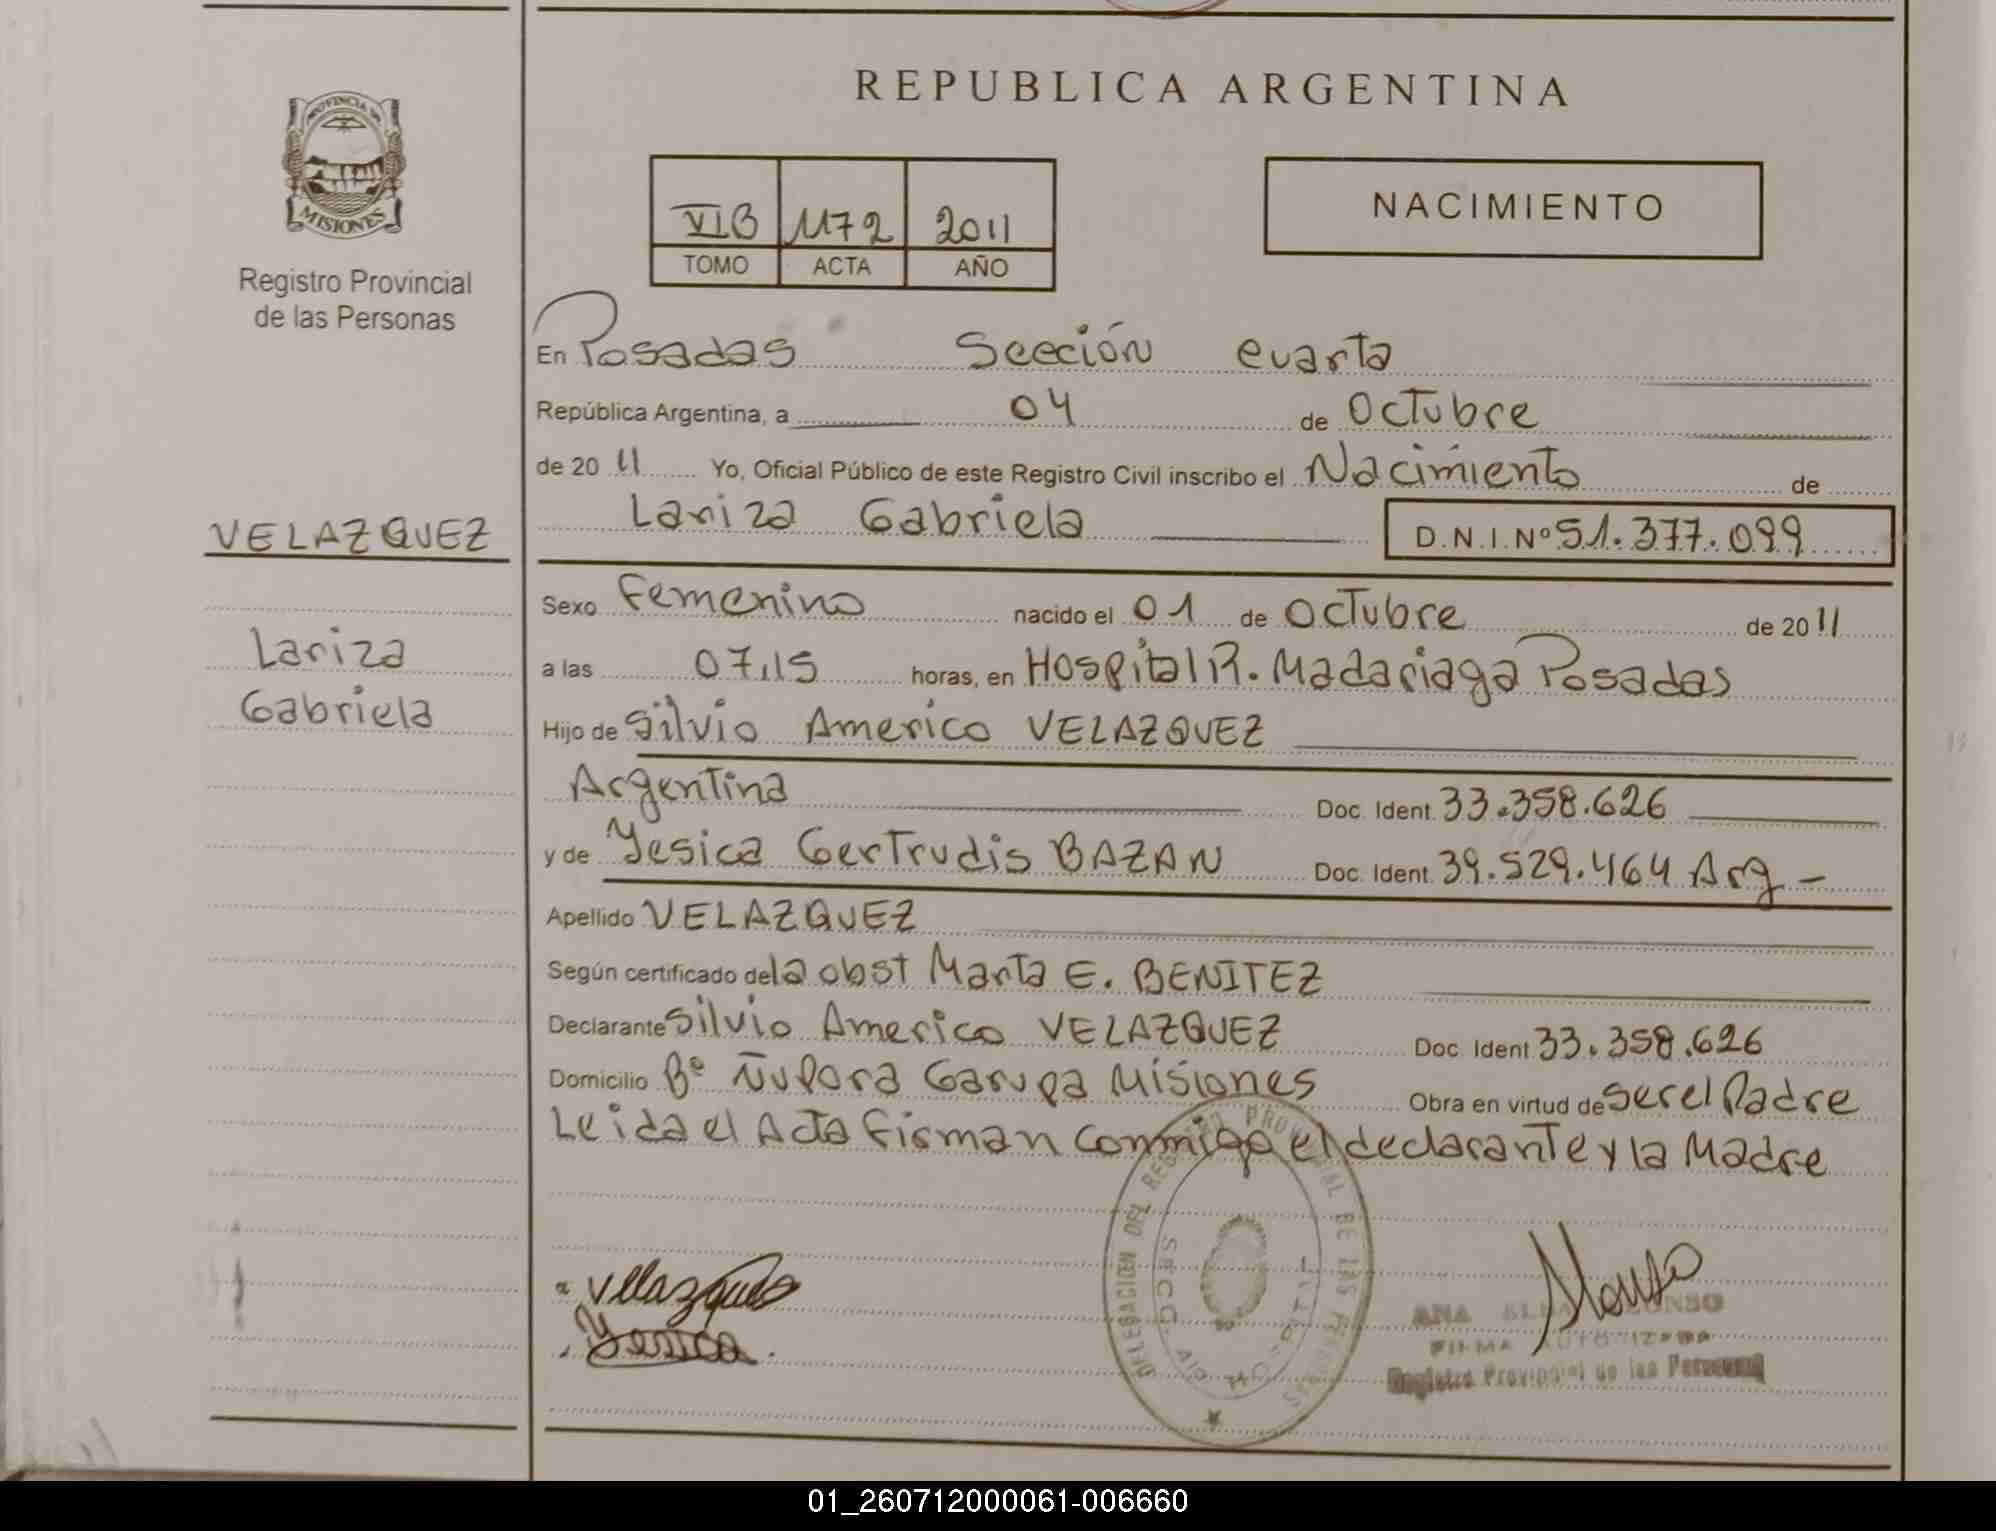 REPUBLICA ARGENTINA
PROVINCIA DE
MISIONES
Registro Provincial
de las Personas
VIB 1172 2011
TOMO ACTA AÑO
NACIMIENTO
En Posadas Sección cuarta
República Argentina, a 04 de Octubre
de 20 11 Yo, Oficial Público de este Registro Civil inscribo el Nacimiento de
Lariza Gabriela D.N.I. Nº 51.377.099
VELAZQUEZ
Lariza
Gabriela
Sexo Femenino nacido el 01 de Octubre de 20 11
a las 07,15 horas, en Hospital R. Madariaga Posadas
Hijo de Silvio Americo VELAZQUEZ
Argentina Doc. Ident. 33.358.626
y de Yesica Gertrudis BAZAN Doc. Ident. 39.529.464 Arg -
Apellido VELAZQUEZ
Según certificado de la obst Marta E. BENITEZ
Declarante Silvio Americo VELAZQUEZ Doc. Ident 33.358.626
Domicilio Bº Ñupora Garupa Misiones Obra en virtud de ser el Padre
Leida el Acta firman conmigo el declarante y la Madre
DELEGACION DEL REGISTRO PROVINCIAL DE LAS PERSONAS
Velazquez
Yesica
ANA ALONSO
FIRMA AUTORIZADA
Registro Provincial de las Personas
01_260712000061-006660